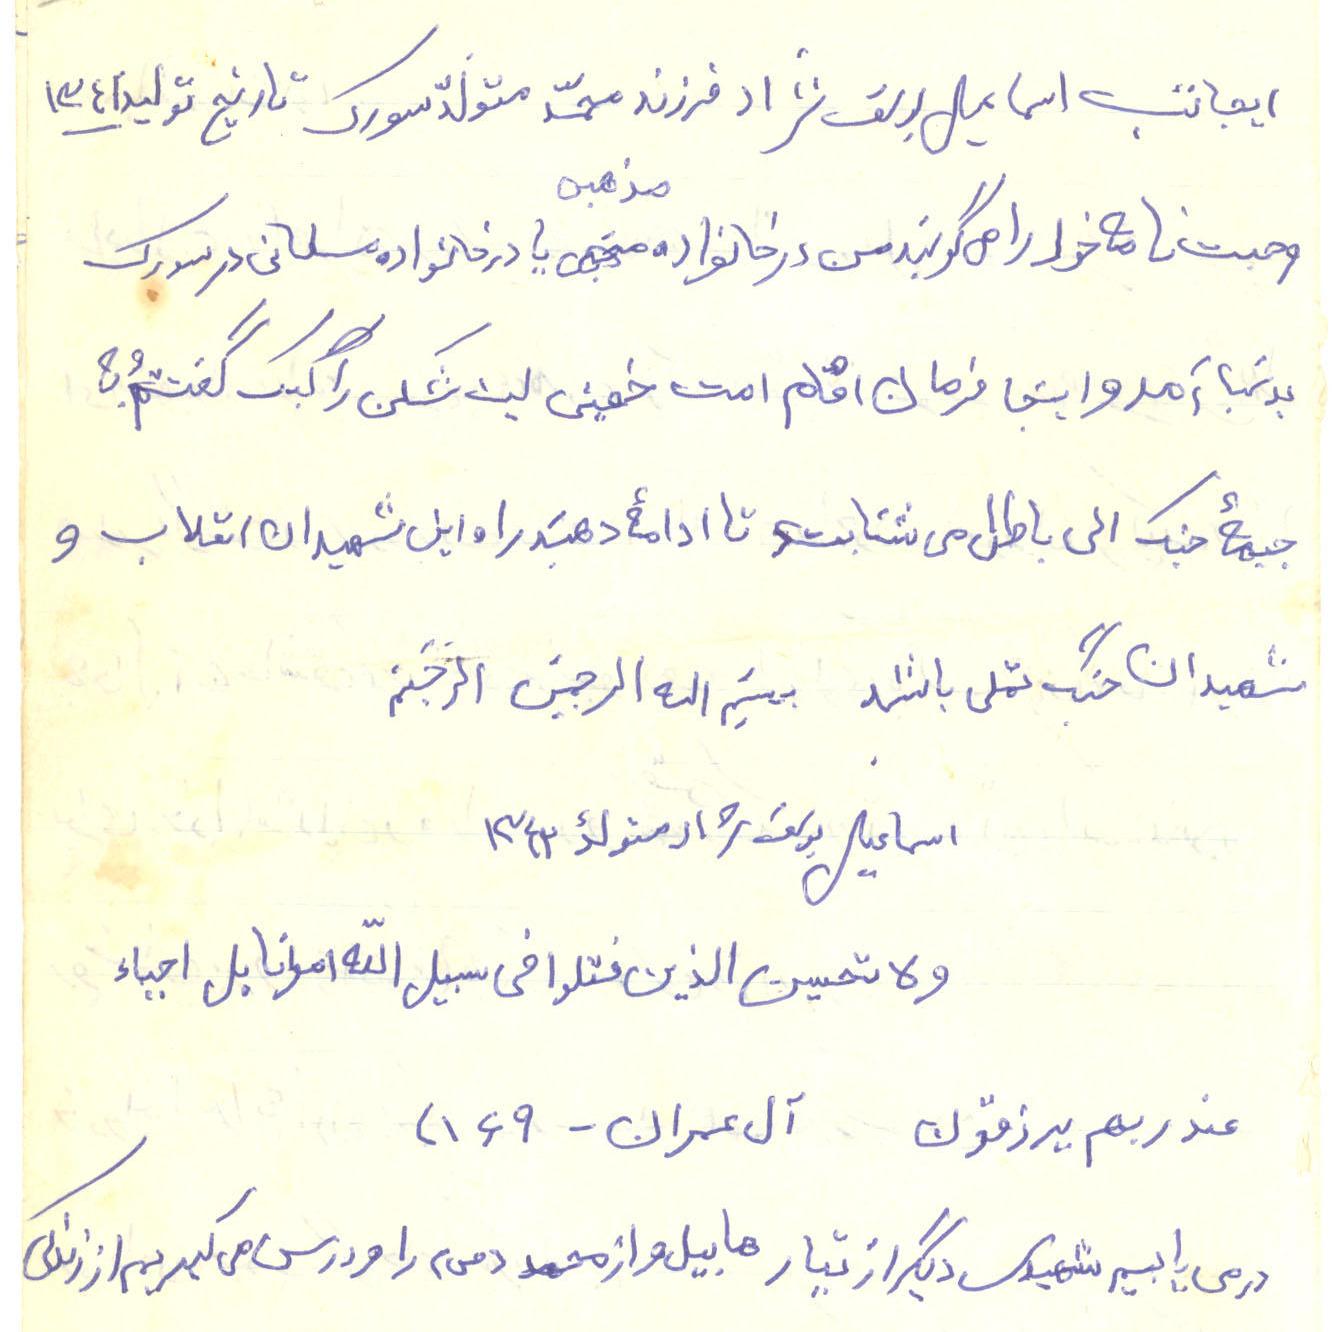 ایجانب اسماعیل یوسف نژاد فرزند محمّد متولّد سورک تاریخ تولید ۱۳٤۱
مذهبی
وصیت نامهٔ خود را می گویند من در خانواده یا در خانواده مسلمانی در سورک
بدنیا آمد و اینجا فرمان امام امت خمینی بت شکن را لبیک گفتم به
جبههٔ جنگ الی باطل می شتابت تا ادامهٔ دهند راه این شهیدان انقلاب و
شهیدان جنگ تملی باشد بسم اله الرحمن الرحیم
اسماعیل یوسف نژاد متولد ۱۳٤۲
ولا تحسبن الذین قتلوا فی سبیل اللّه امواتا بل احیاء
عند ربهم یرزقون آل عمران - ۱۶۹)
در می یابیم شهیدی دیگر از تبار هابیل و از محمد را و درس می گیریم از زندگی